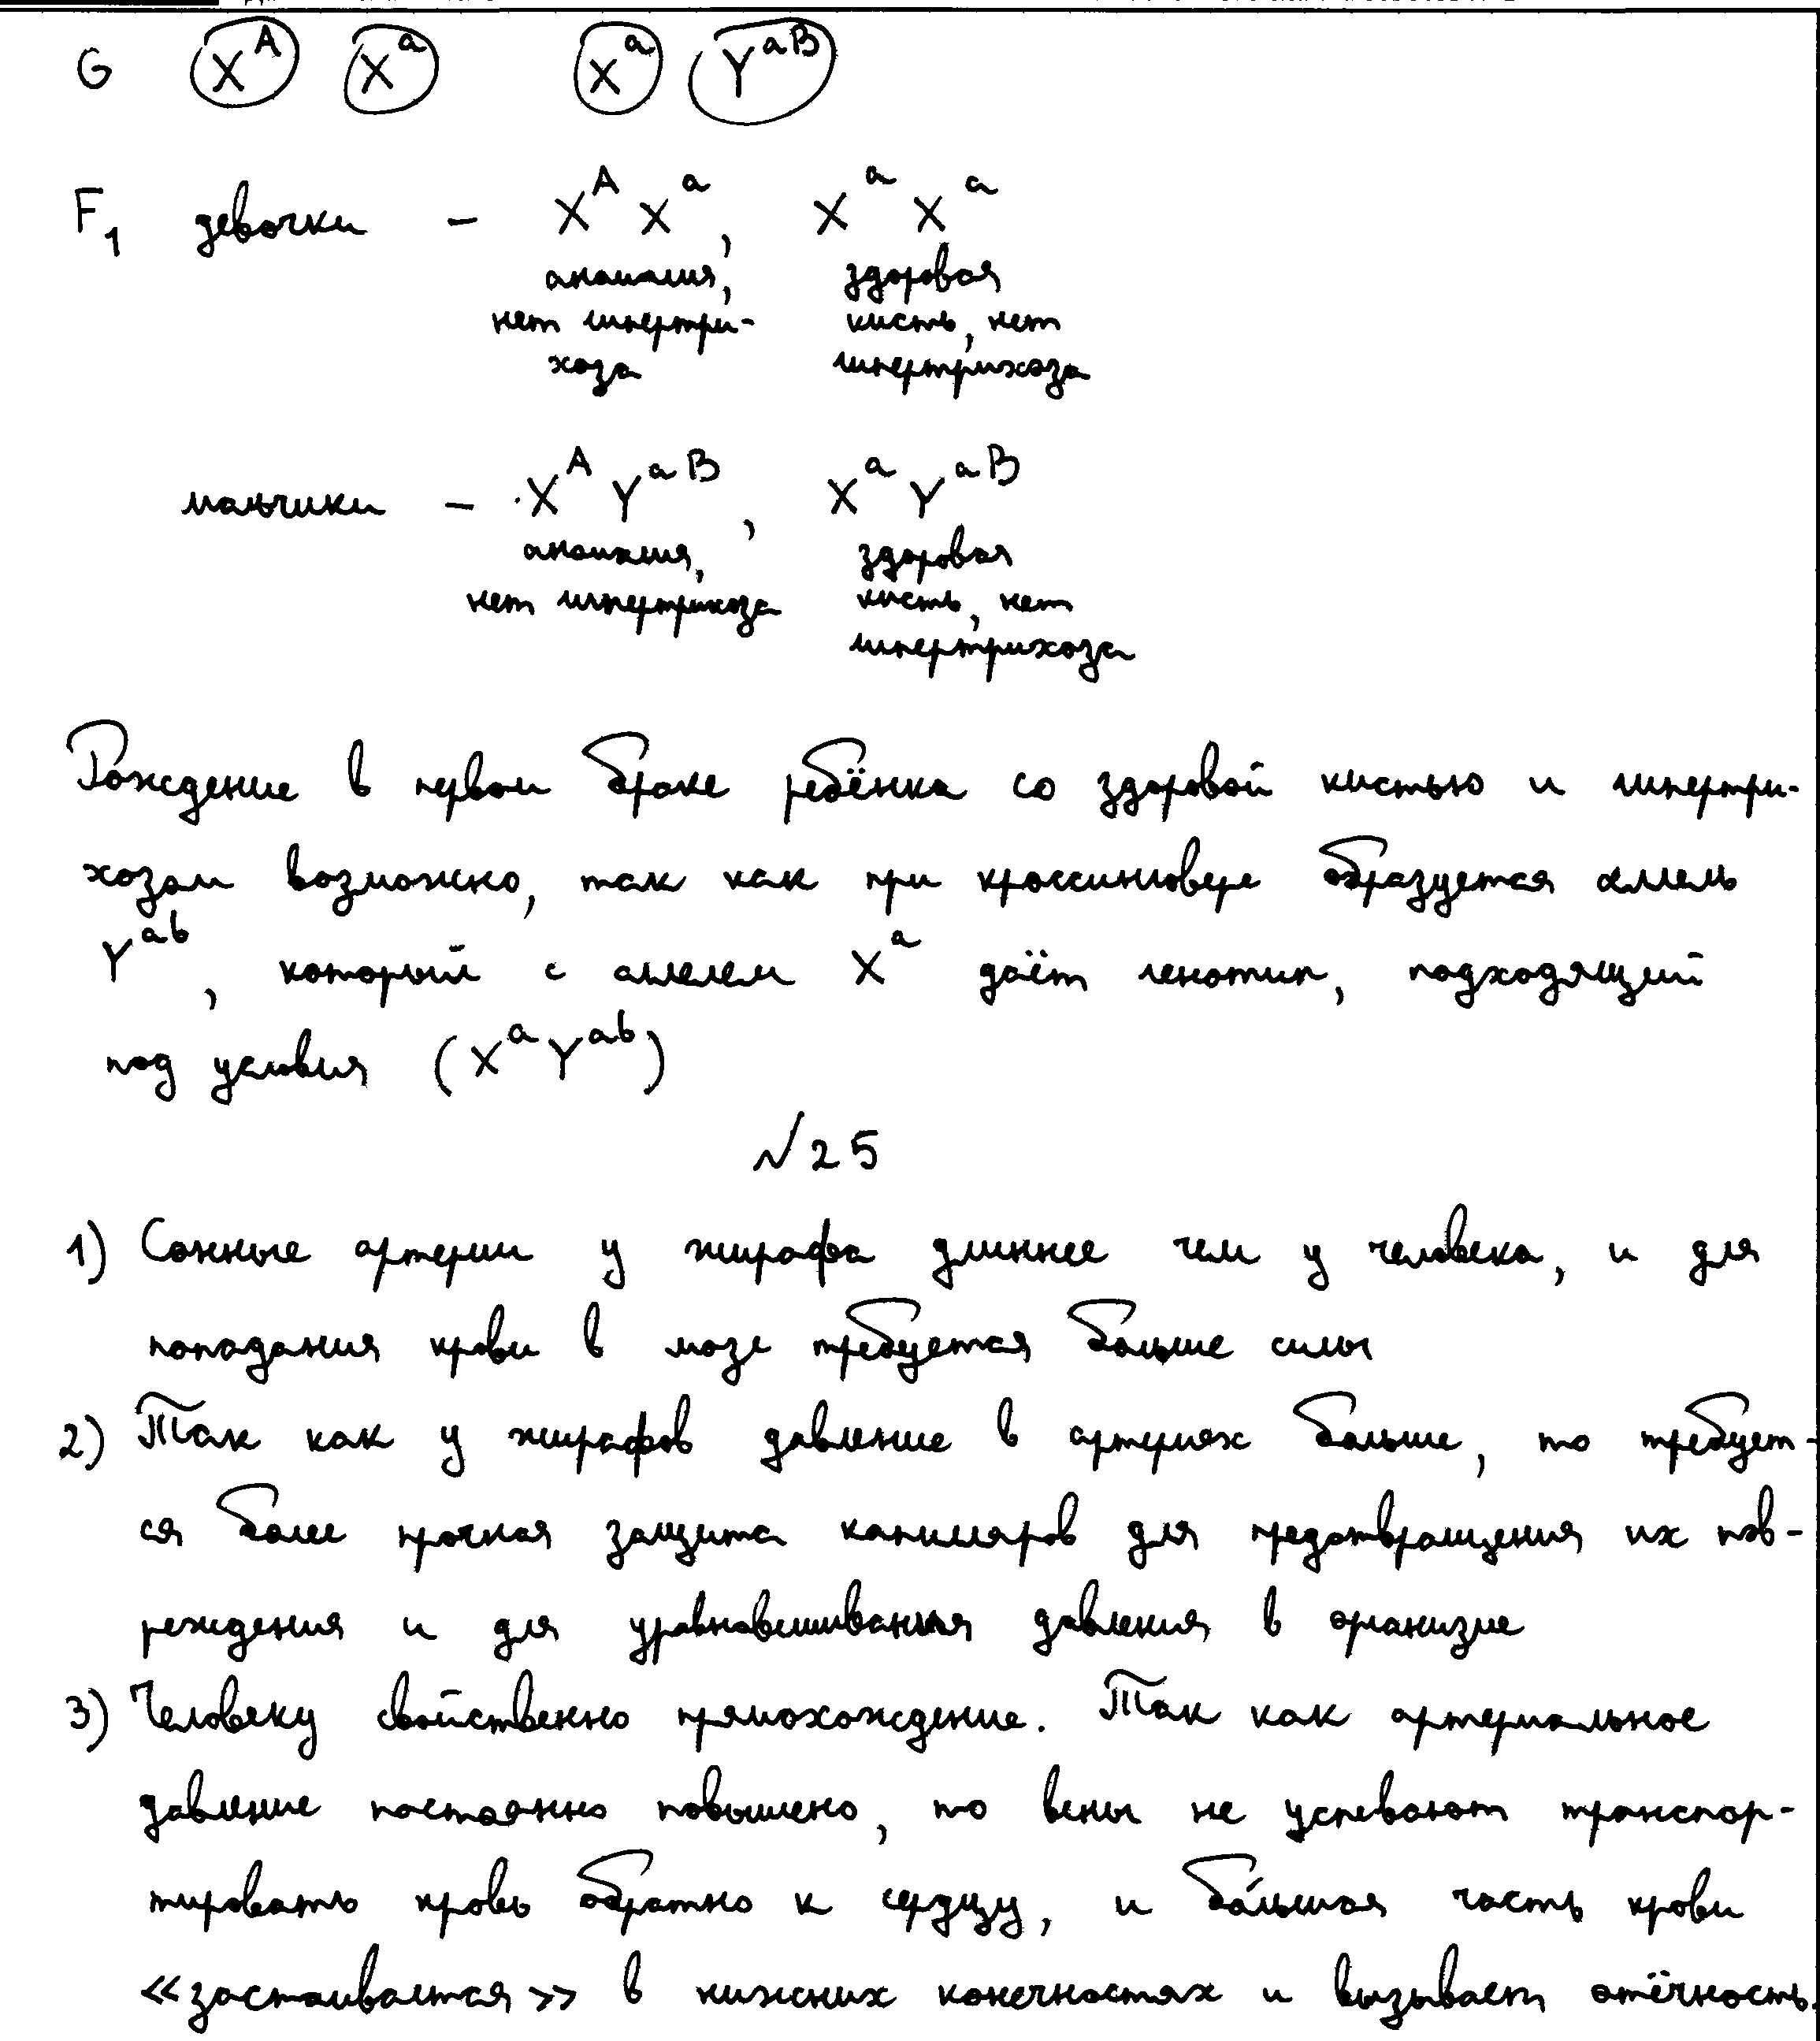 G X^A X^a X^a Y^aB
F₁ девочки – X^A X^a, X^a X^a
аномалия, здоровая
нет гипертри- кисть, нет
хоза гипертрихоза
мальчики – X^A Y^aB, X^a Y^aB
аномалия, здоровая
нет гипертрихоза кисть, нет
гипертрихоза
Рождение в первом браке ребёнка со здоровой кистью и гипертри-
хозом возможно, так как при кроссинговере образуется аллель
Y^ab, который с аллелем X^a даёт генотип, подходящий
под условия (X^a Y^ab)
№25
1) Сонные артерии у жирафа длиннее чем у человека, и для
попадания крови в мозг требуется больше силы
2) Так как у жирафов давление в артериях больше, то требует-
ся более прочная защита капилляров для предотвращения их пов-
реждения и для уравновешивания давления в организме
3) Человеку свойственно прямохождение. Так как артериальное
давление постоянно повышено, то вены не успевают транспор-
тировать кровь обратно к сердцу, и бо́льшая часть крови
«застаивается» в нижних конечностях и вызывает отёчность.